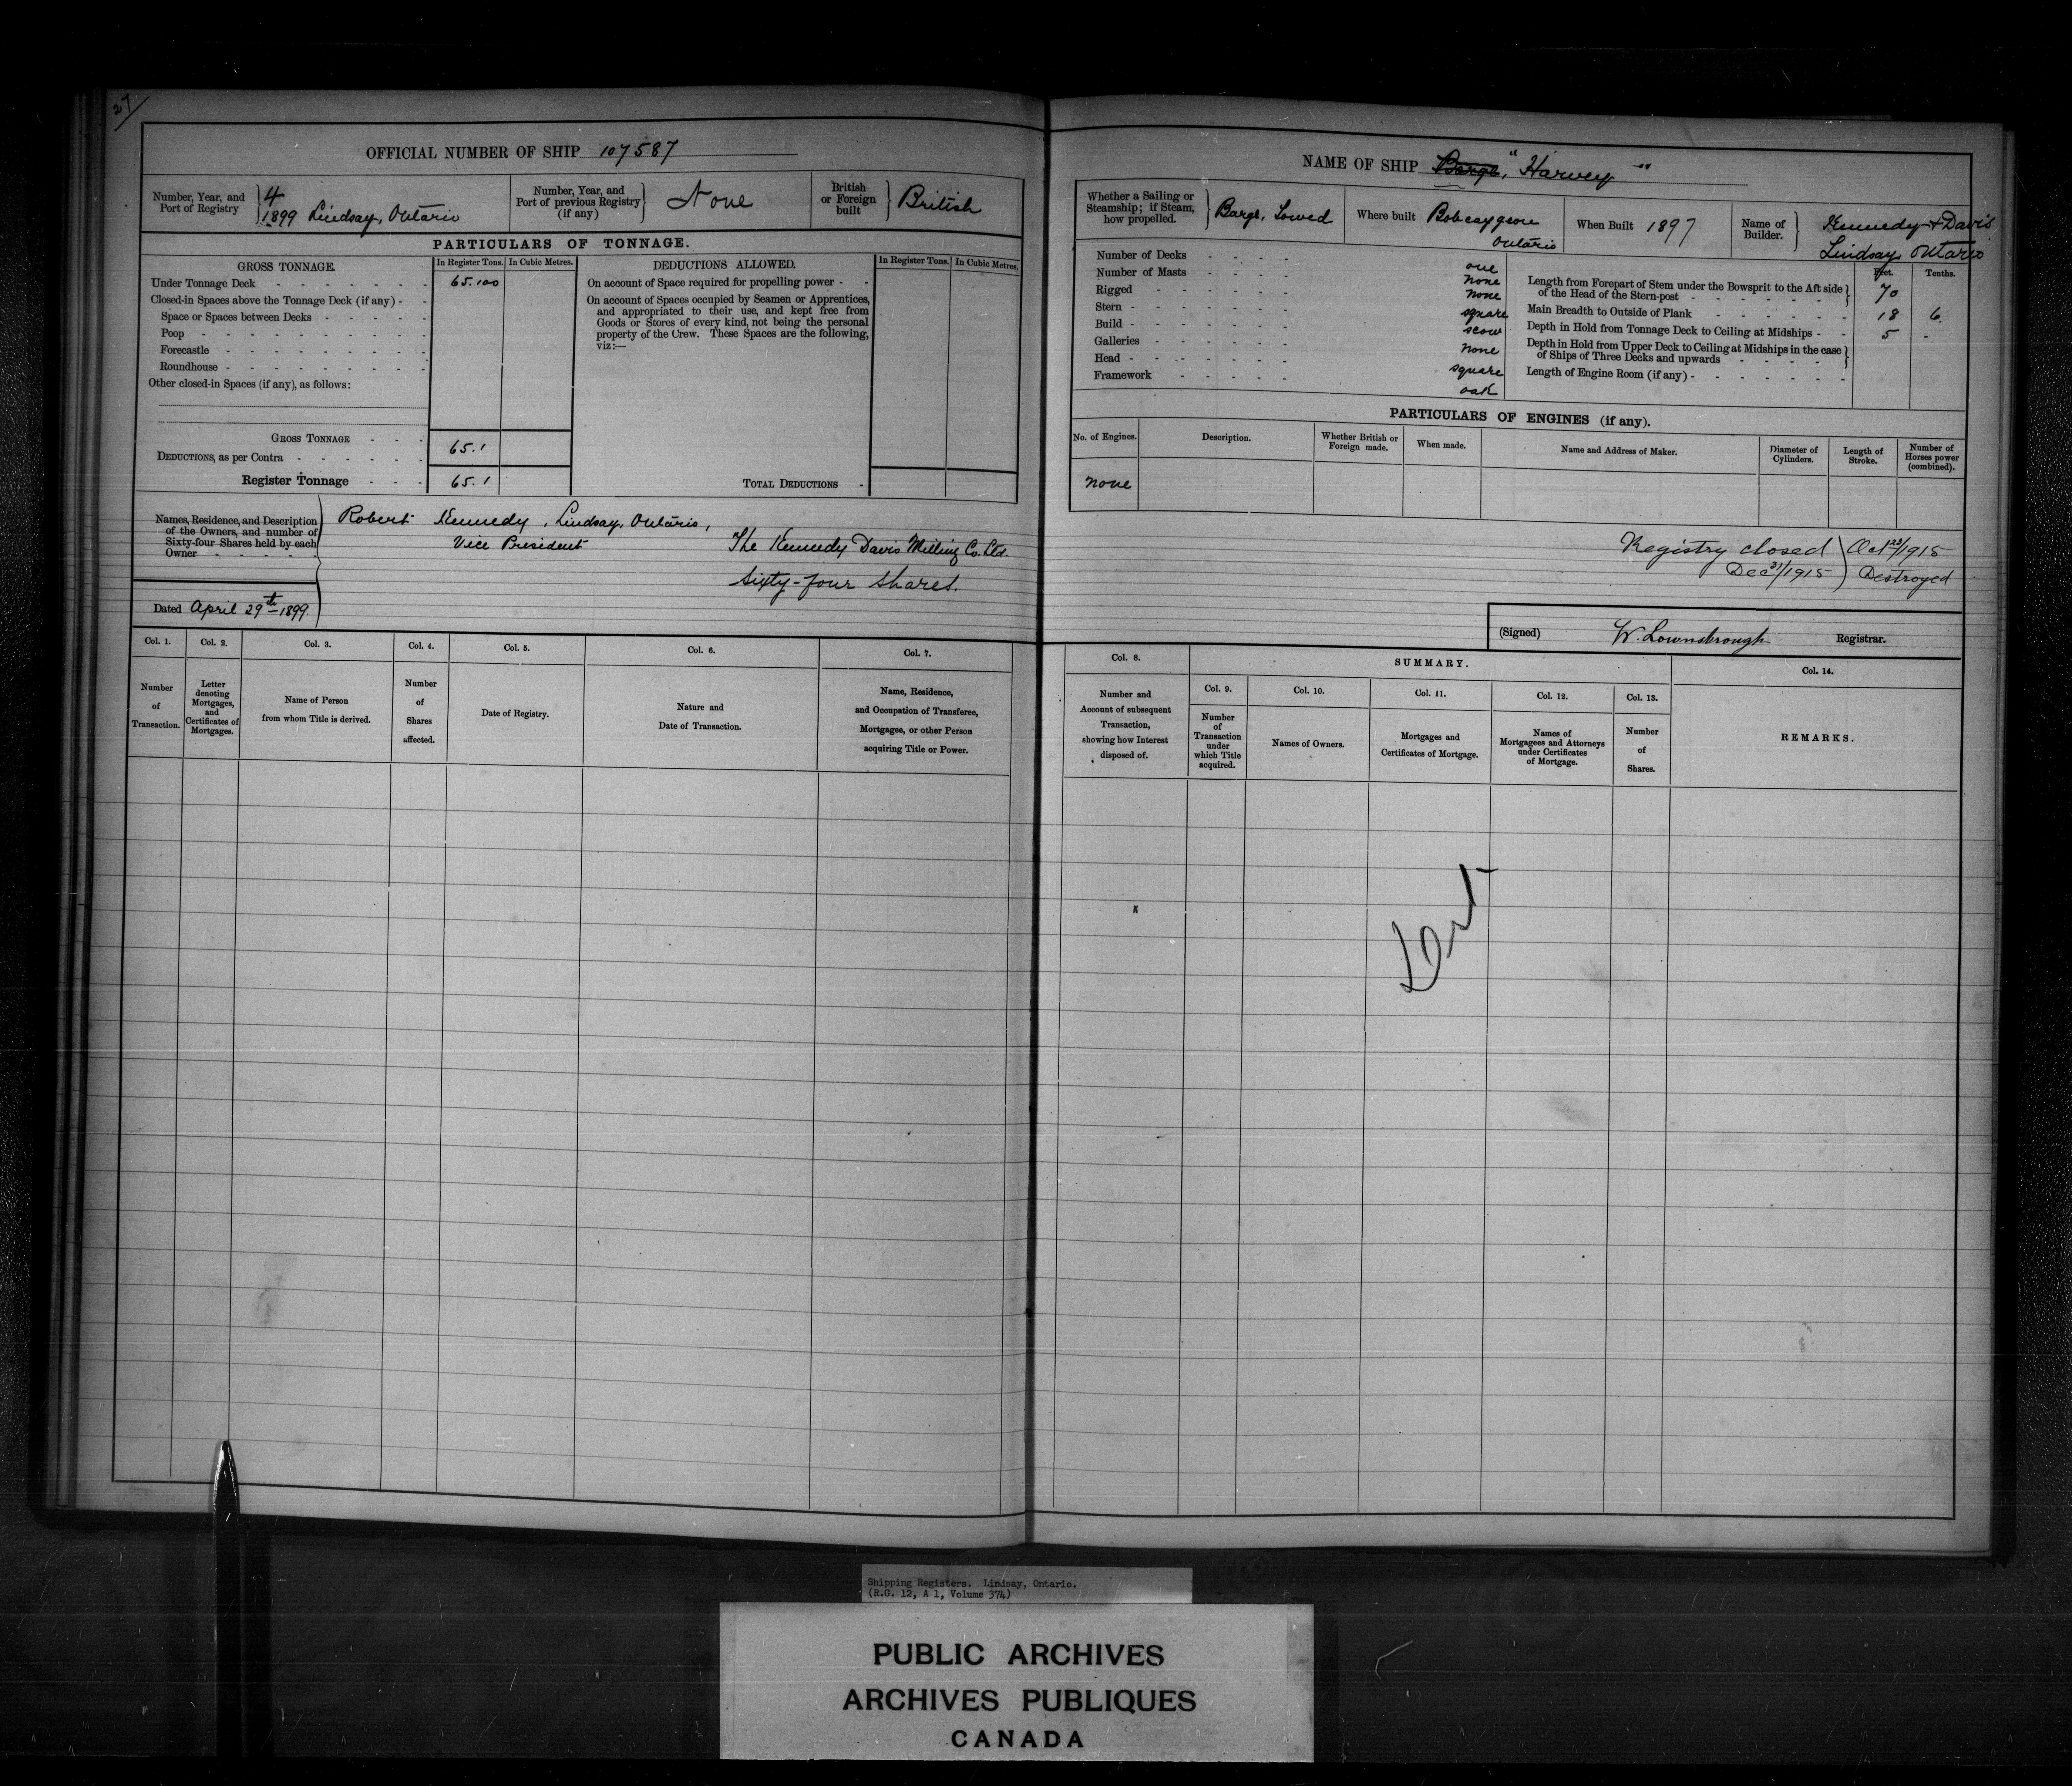 27
OFFICIAL NUMBER OF SHIP 107587
Number, Year, and Port of Registry 4 1899 Lindsay, Ontario
Number, Year, and Port of previous Registry (if any) None
British or Foreign built British
PARTICULARS OF TONNAGE.
GROSS TONNAGE. In Register Tons. In Cubic Metres.
Under Tonnage Deck 65.100
Closed-in Spaces above the Tonnage Deck (if any)
Space or Spaces between Decks
Poop
Forecastle
Roundhouse
Other closed-in Spaces (if any), as follows:
GROSS TONNAGE 65.1
DEDUCTIONS, as per Contra
Register Tonnage 65.1
DEDUCTIONS ALLOWED. In Register Tons. In Cubic Metres.
On account of Space required for propelling power
On account of Spaces occupied by Seamen or Apprentices,
and appropriated to their use, and kept free from
Goods or Stores of every kind, not being the personal
property of the Crew. These Spaces are the following,
viz:—
TOTAL DEDUCTIONS
Names, Residence, and Description
of the Owners, and number of
Sixty-four Shares held by each
Owner
Robert Kennedy, Lindsay, Ontario,
Vice President The Kennedy Davis Milling Co. Ltd.
Sixty-four shares.
Dated April 29th 1899.
Col. 1. Number of Transaction.
Col. 2. Letter denoting Mortgages, and Certificates of Mortgages.
Col. 3. Name of Person from whom Title is derived.
Col. 4. Number of Shares affected.
Col. 5. Date of Registry.
Col. 6. Nature and Date of Transaction.
Col. 7. Name, Residence, and Occupation of Transferee, Mortgagee, or other Person acquiring Title or Power.
NAME OF SHIP Barge, "Harvey"
Whether a Sailing or Steamship; if Steam, how propelled. Barge, Towed
Where built Bobcaygeon Ontario
When Built 1897
Name of Builder. Kennedy & Davis Lindsay, Ontario
Number of Decks one
Number of Masts none
Rigged none
Stern square
Build scow
Galleries none
Head square
Framework oak
Feet. Tenths.
Length from Forepart of Stem under the Bowsprit to the Aft side
of the Head of the Stern-post 70
Main Breadth to Outside of Plank 18 6
Depth in Hold from Tonnage Deck to Ceiling at Midships 5 -
Depth in Hold from Upper Deck to Ceiling at Midships in the case
of Ships of Three Decks and upwards
Length of Engine Room (if any)
PARTICULARS OF ENGINES (if any).
No. of Engines. Description. Whether British or Foreign made. When made. Name and Address of Maker. Diameter of Cylinders. Length of Stroke. Number of Horses power (combined).
none
Registry closed Oct 23/1915
Dec 31/1915 Destroyed
(Signed) W. Lownsbrough Registrar.
Col. 8. Number and Account of subsequent Transaction, showing how Interest disposed of.
SUMMARY.
Col. 9. Number of Transaction under which Title acquired.
Col. 10. Names of Owners.
Col. 11. Mortgages and Certificates of Mortgage.
Col. 12. Names of Mortgagees and Attorneys under Certificates of Mortgage.
Col. 13. Number of Shares.
Col. 14. REMARKS.
Shipping Registers. Lindsay, Ontario.
(R.G. 12, A 1, Volume 374)
PUBLIC ARCHIVES
ARCHIVES PUBLIQUES
CANADA